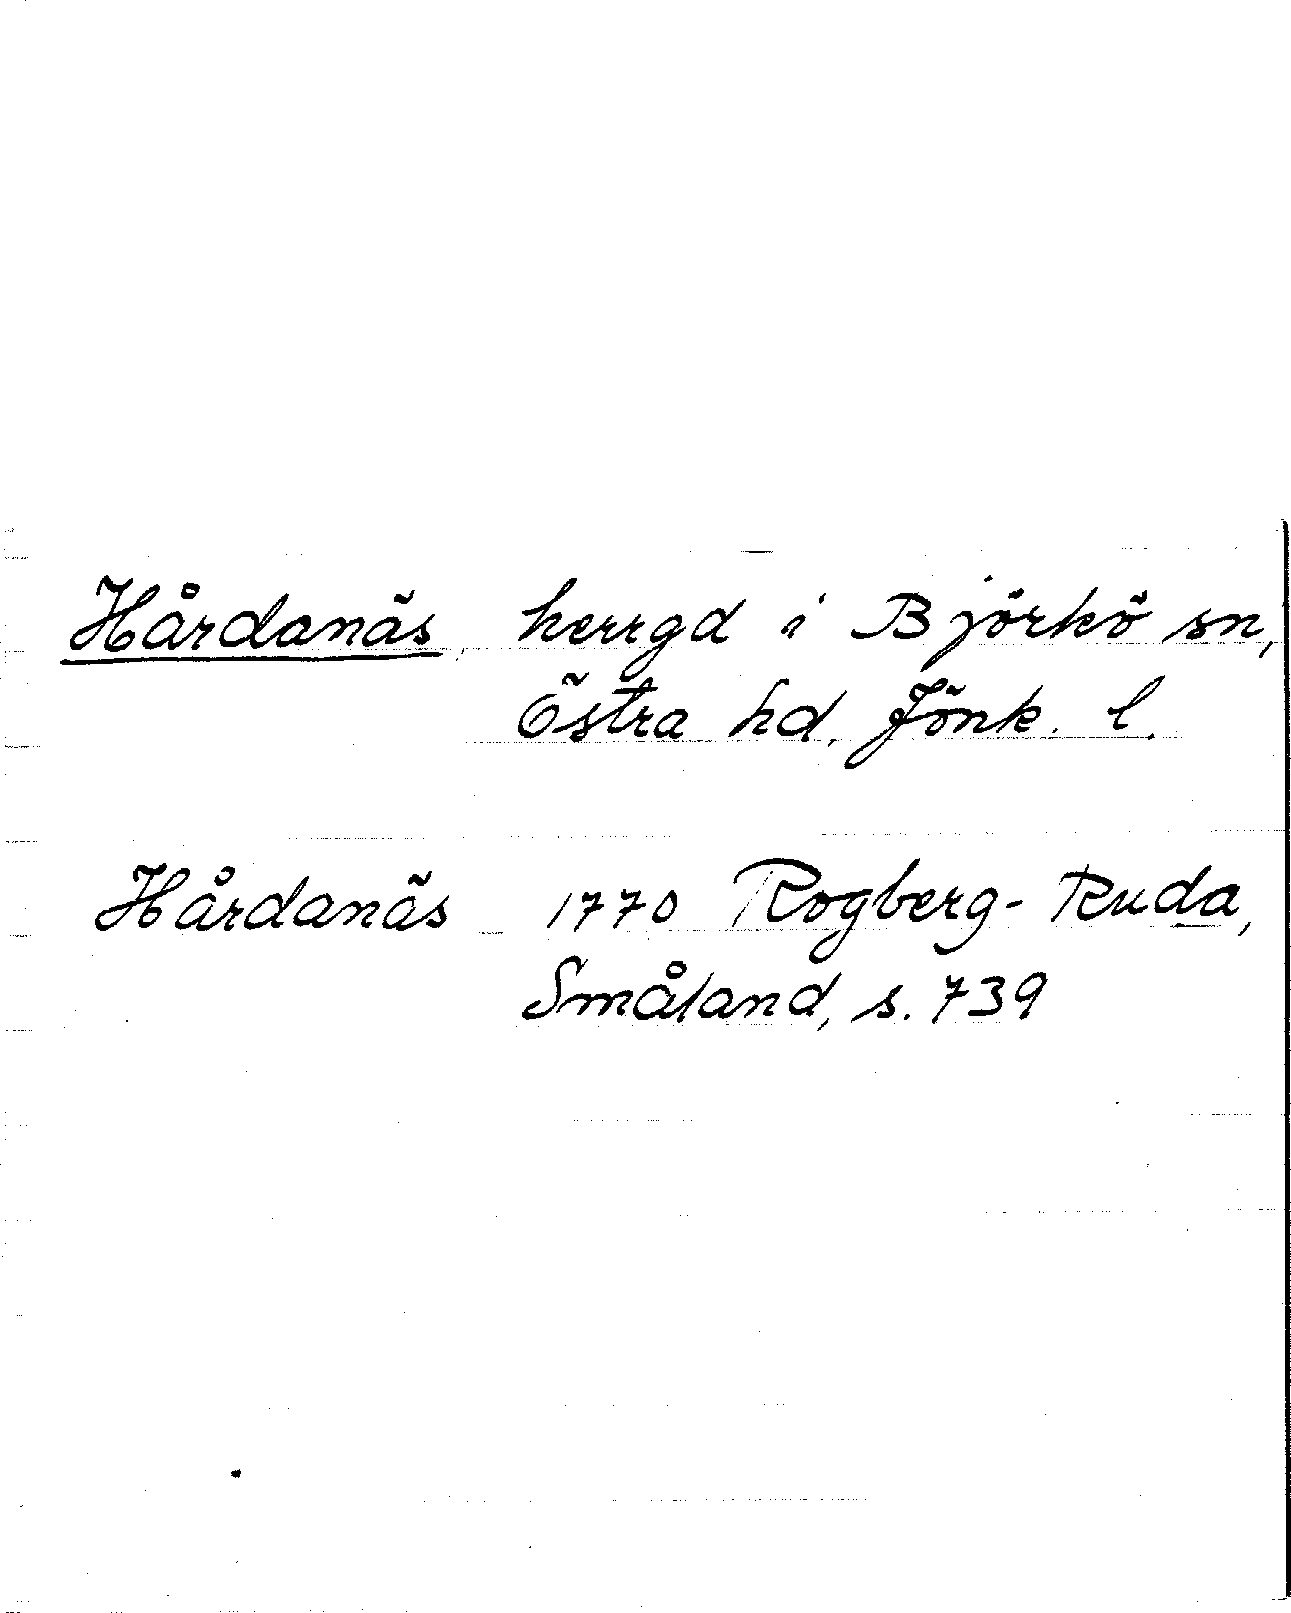 Hårdanäs, herrgd i Björkö sn,
Östra hd, Jönk. l.
Hårdanäs 1770 Rogberg-Ruda,
Småland, s. 739